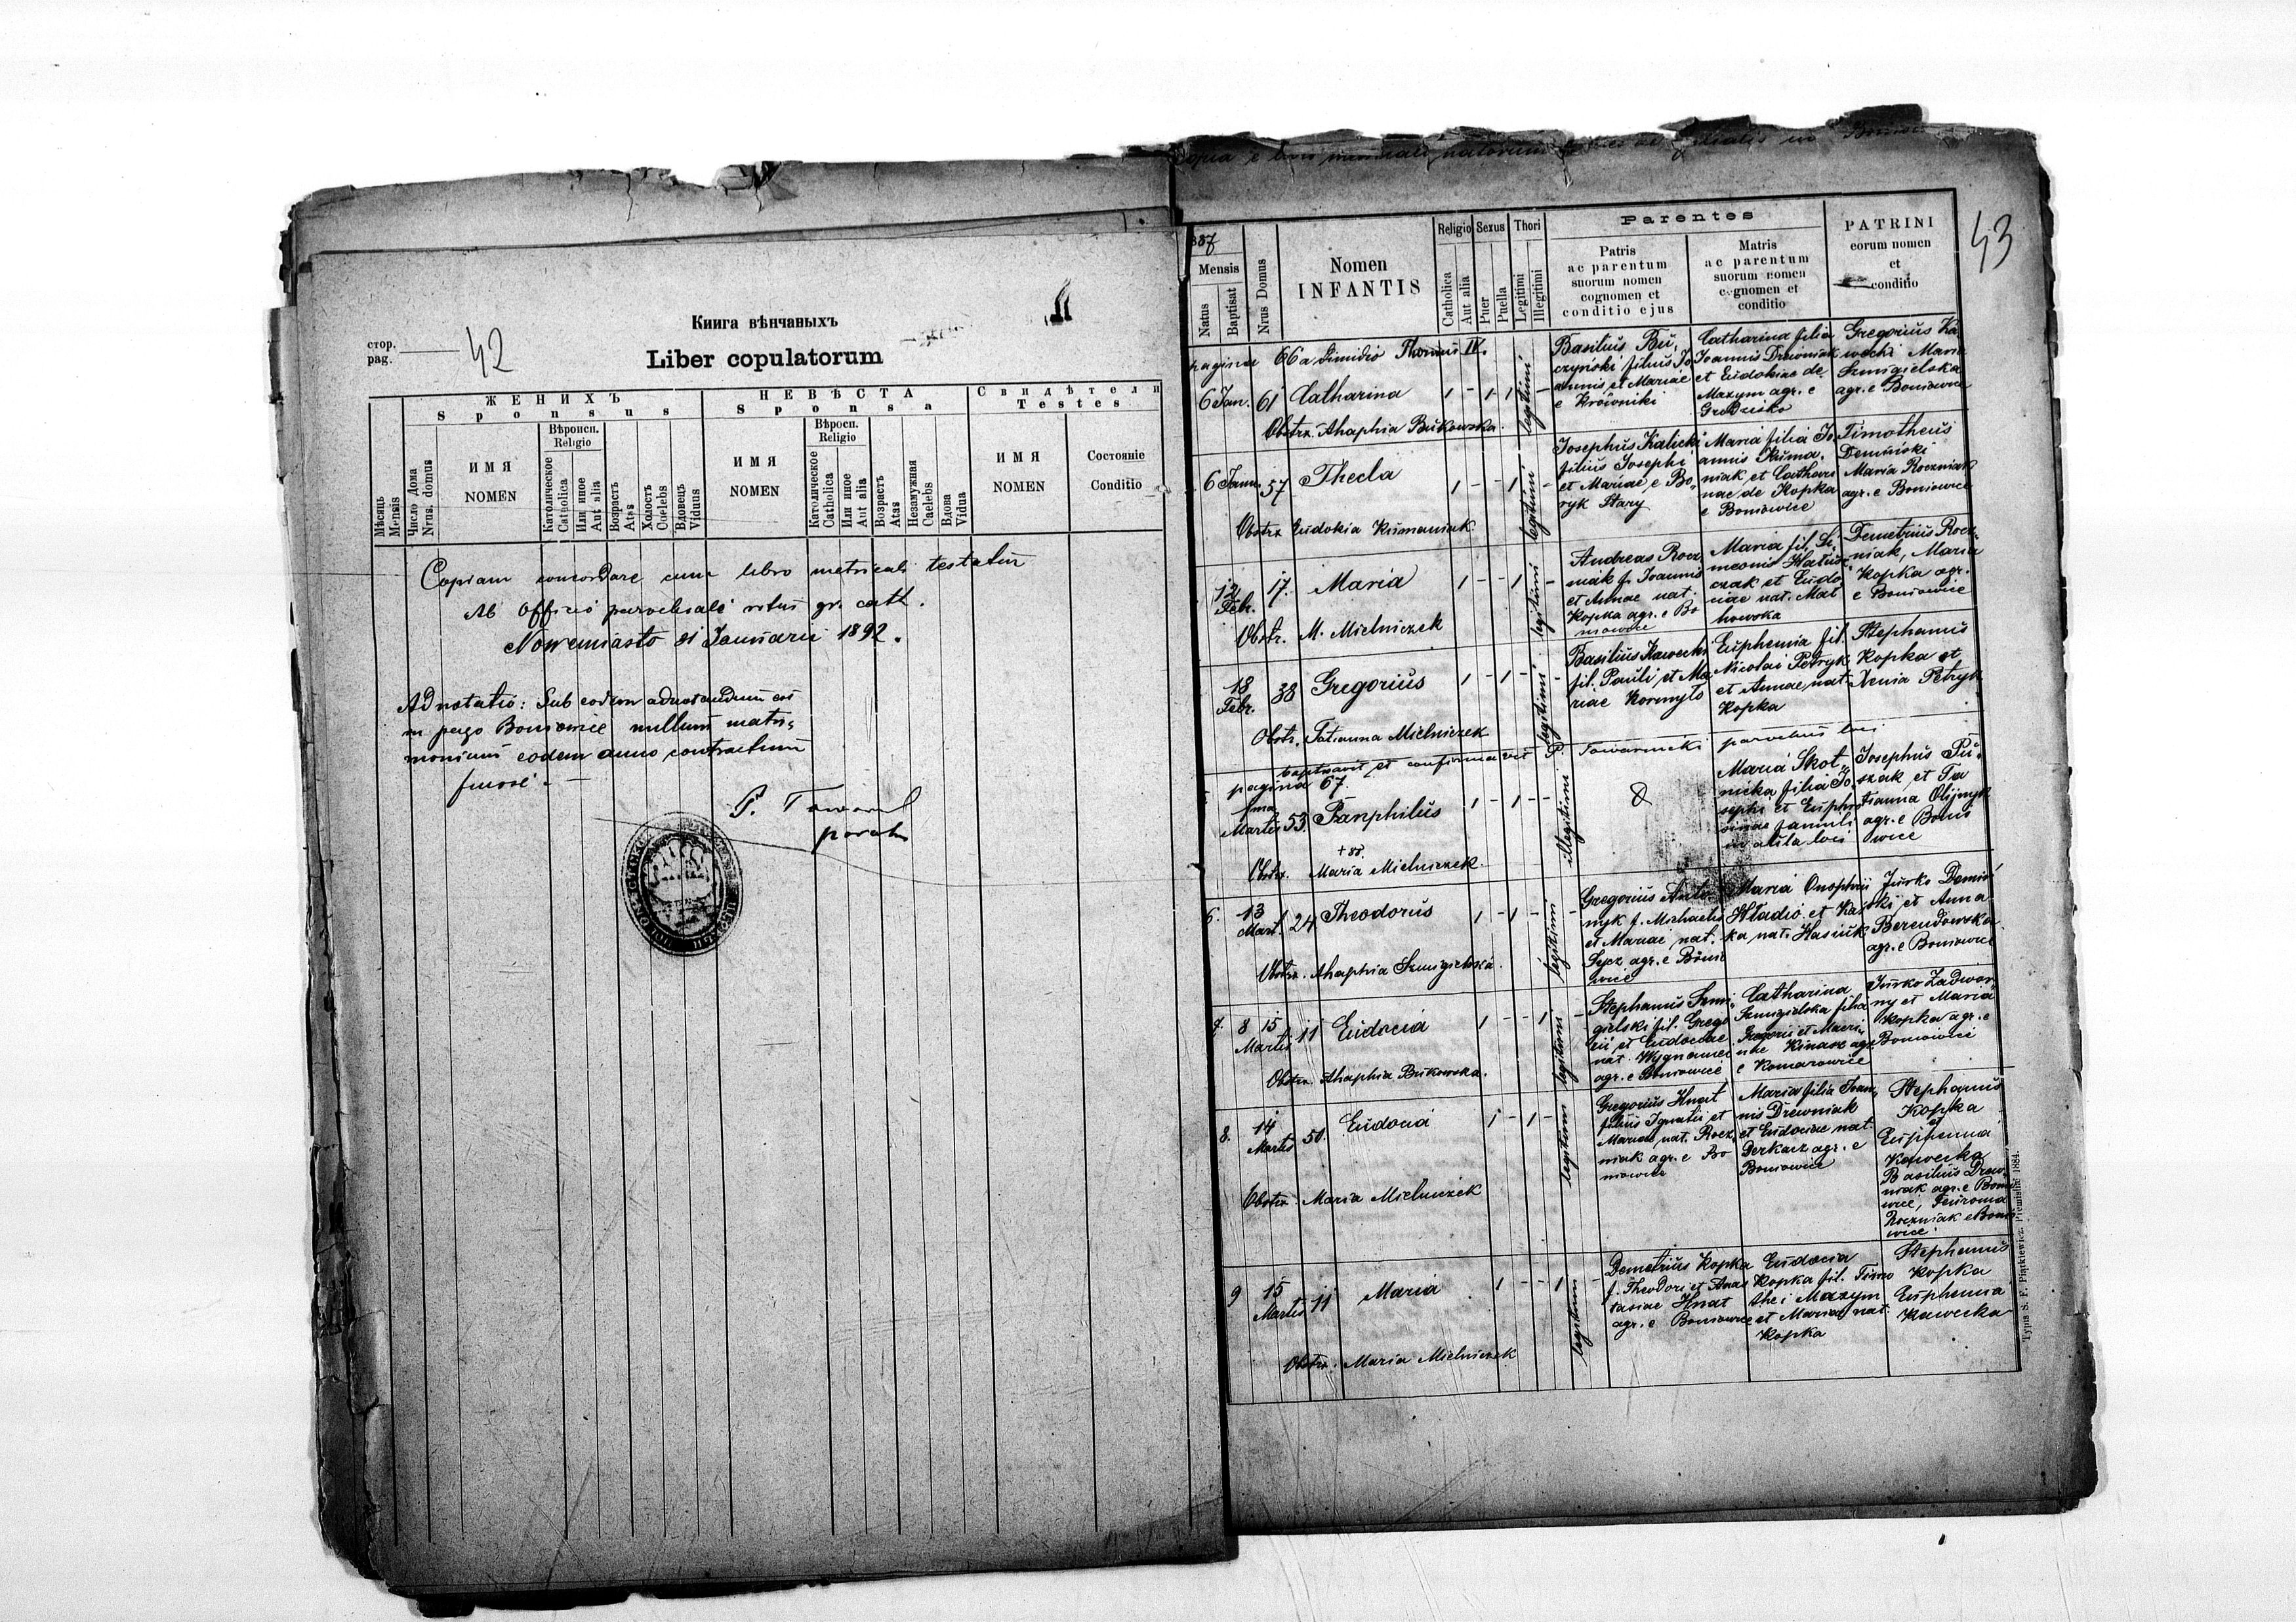 Книга вѣнчаныхъ
стор.
pag. 42
Liber copulatorum
ЖЕНИХЪ
Sponsus
НЕВѢСТА
Sponsa
Свидѣтели
Testes
Мѣсяць
Mensis
Число Дома
Nrus. domus
ИМЯ
NOMEN
Вѣроисп.
Religio
Католическое
Catholica
Или иное
Aut alia
Возрастъ
Atas
Холостъ
Caelebs
Вдовецъ
Viduus
ИМЯ
NOMEN
Вѣроисп.
Religio
Католическое
Catholica
Или иное
Aut alia
Возрастъ
Atas
Незамужная
Caelebs
Вдова
Vidua
ИМЯ
NOMEN
Состояніе
Conditio
Copiam concordare cum libro metricali testatur
Ab Officio parochiali ritus gr. cath.
Nowemiasto 31 Januarii 1892.
Adnotatio: Sub eodem adnotandum est
in pago Boniowice nullum matri-
monium eodem anno contractum
fuisse.
P.
paroch
43
Copia e libro metricali natorum
887
Mensis
Natus
Baptisat
Nrus Domus
Nomen
INFANTIS
Religio
Catholica
Aut alia
Sexus
Puer
Puella
Thori
Legitimi
Illegitimi
Parentes
Patris
ac parentum
suorum nomen
cognomen et
conditio ejus
Matris
ac parentum
suorum nomen
cognomen et
conditio
PATRINI
eorum nomen
et
conditio
pagina 66 a dimidio Thomus IV.
6 Jan. 61 Catharina 1 - - 1 1 -
legitimi
Obstx. Ahaphia Bukowska
Basilius Bu-
czyński filius Jo
annis et Mariae
e Krowniki
Catharina filia
Joannis Drewniak
et Eudokiae de
Maxym agr. e
Grodzisko
Gregorius Ka
wecki Maria
Szmigielska
agr. e Boniowice
6 Janu. 57 Thecla 1 - - 1 -
legitimi
Obstx Eudokia Kumaniak
Josephus Kalicki
filius Josephi
et Mariae e Bo-
ryk Stary
Maria filia Jo.
annis Kuma-
niak et Cathari
nae de Kopka
e Boniowice
Timotheus
Demiński
Maria Roczniak
agr. e Boniowice
12
Febr. 17. Maria 1 - - 1 -
legitimi
Obstr. M. Mielniczek
Andreas Rocz
niak f. Joannis
et Annae nat.
Kopka agr. e Bo
niowice
Maria fil. Si
meonis Hatus
czak et Eudo
ciae nat. Mat
howska
Demetrius Rocz-
niak, Maria
Kopka agr.
e Boniowice
18
Febr. 38 Gregorius 1 - 1 - -
legitimi
Obstr. Tatianna Mielniczek
Basilius Kawecki
fil. Pauli et Ma
riae Kormyto
Euphemia fil.
Nicolai Petryk
et Annae nat.
Kopka
Stephanus
Kopka et
Xenia Petryk
baptisavit et confirmavit P. Towarnicki parochus loci
pagina 67.
Martis 53. Panphilus 1 - 1 - -
illegitimi
Obstx. Maria Mielniczek
Maria Skot-
nicka filia Jo
sephi et Euphro
sinae famuli
in aula loci
Josephus Pu-
szak et Ta
tianna Olijnyk
agr. e Bonio
wice
6. 13
Mart. 24 Theodorus 1 - 1 - -
legitimi
Obstx. Ahaphia Szmigielska
Gregorius Anto
nyk f. Michaelis
et Mariae nat.
Sycz agr. e Bonio
wice
Maria Onophrii
Hladio et Ka
ka nat. Hasiuk
Jurko Demiń
ski et Anna
Berendowska
agr. e Boniowice
7. 8 15
Martis 11 Eudocia 1 - - 1 -
legitimi
Obstx. Ahaphia Bukowska.
Stephanus Szmi-
gielski fil. Grego
rii et Eudociae
nat. Wygnaniec
agr. e Boniowice
Catharina
Szmigielska filia
Gregorii et Mari
nae Kinasz agr.
e Komarowice
Jurko Zadwor-
ny et Maria
Kopka agr. e
Boniowice
8. 14
Martis 50. Eudocia 1 - 1 -
legitimi
Obstx. Maria Mielniczek
Gregorius Hnat
filius Ignatii et
Mariae nat. Rocz
niak agr. e Bo
niowice
Maria filia Joan-
nis Drewniak
et Eudociae nat.
Derkacz agr. e
Boniowice
Stephanus
Kopka
et
Euphemia
Kawecka
Basilius Drew-
niak agr. e Bonio
wice,
Roczniak e Bonio
wice
9 15
Martis 11 Maria 1 - - 1 -
legitimi
Obstx. Maria Mielniczek
Demetrius Kopka
f. Theodori et Anas
tasiae Hnat
agr. e Boniowice
Eudocia
Kopka fil. Timo
thei Maxym
et Mariae nat.
Kopka
Stephanus
Kopka
Euphemia
Kawecka
Typis S. F. Piątkiewicz. Premisliae 1884.